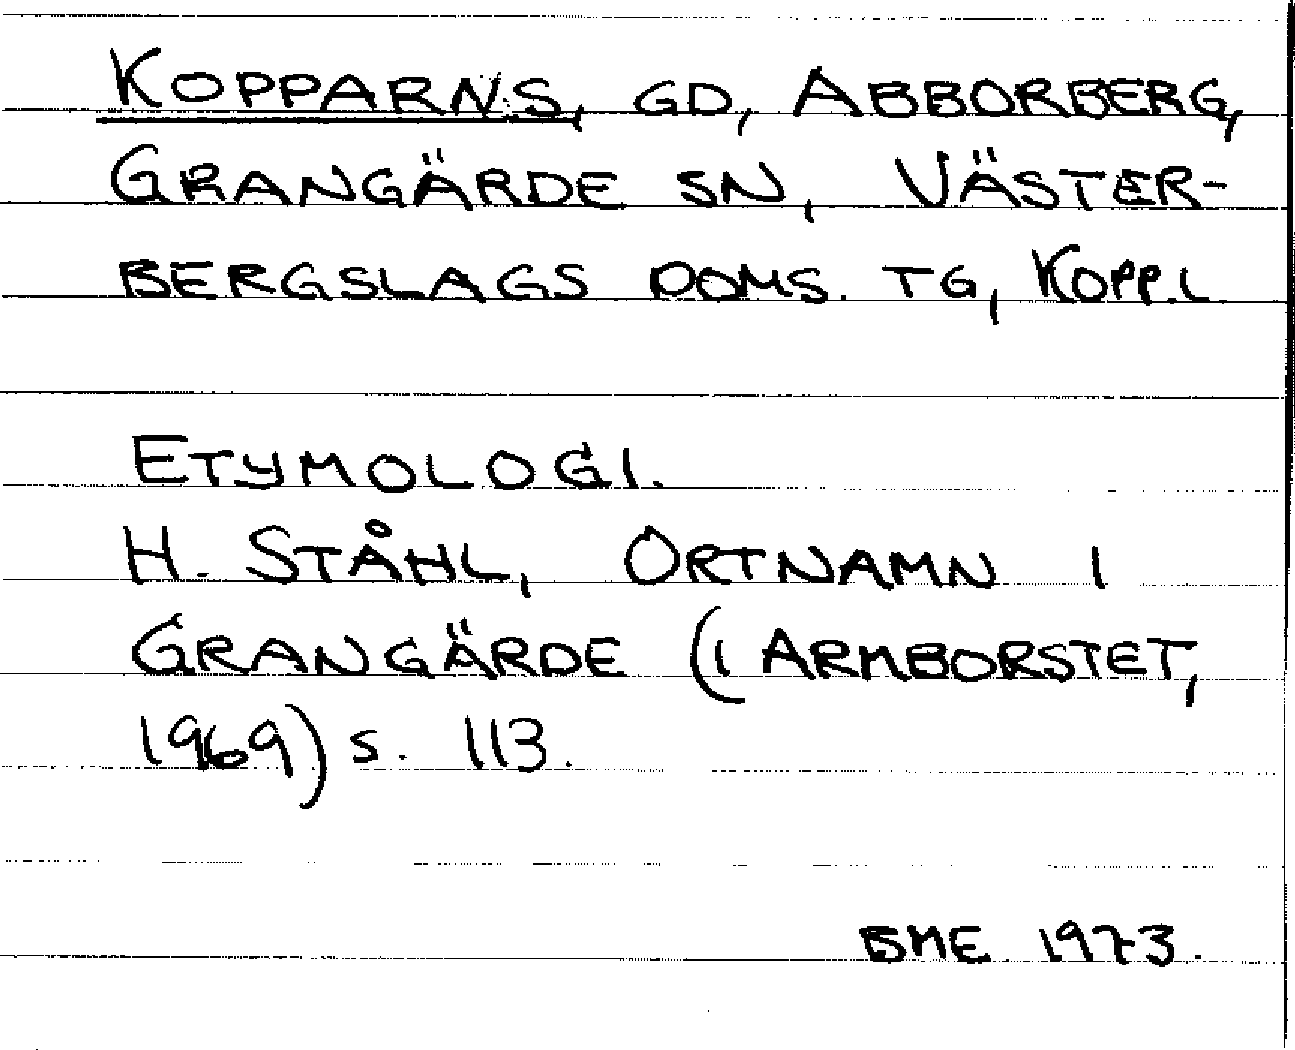 KOPPARNS, GD, ABBORBERG,
GRANGÄRDE SN, VÄSTER-
BERGSLAGS DOMS. TG, KOPP.L
ETYMOLOGI.
H. STÅHL, ORTNAMN I
GRANGÄRDE (I ARMBORSTET,
1969) s. 113.
BME 1973.